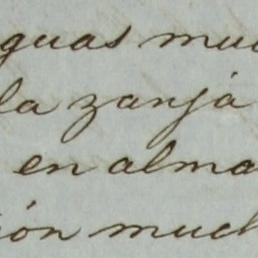 guas muc
la zanja
en alma
ión much